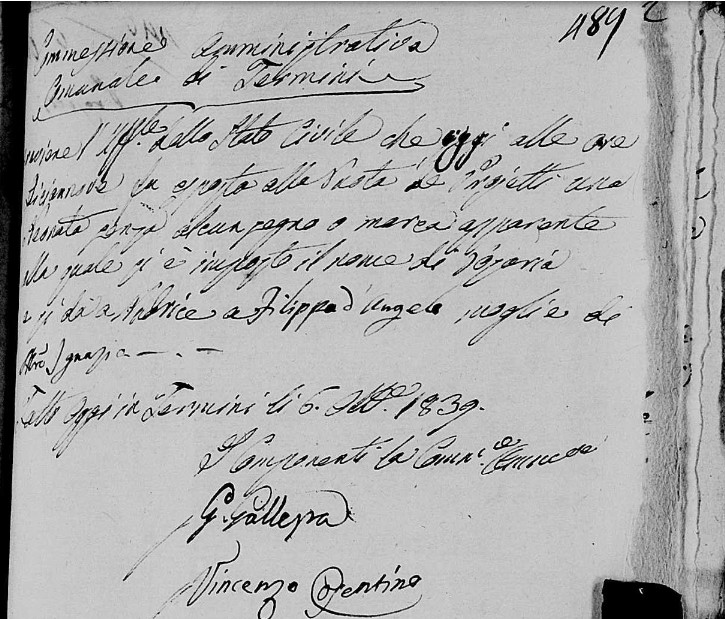 489
Commessione Amministrativa
Comunale di Termini
l'Uff.le dello Stato Civile che oggi alle ore
diecennove fu esposta alla Ruota de Projetti una
Neonata senza alcun pegno o marca apparente
alla quale si è imposto il nome di
e si da a Nutrice a Filippa d'Angelo moglie di
Ignazio
Fatto oggi in Termini li 6. 1839.
I Componenti la Comm.e
Vincenzo Cosentino